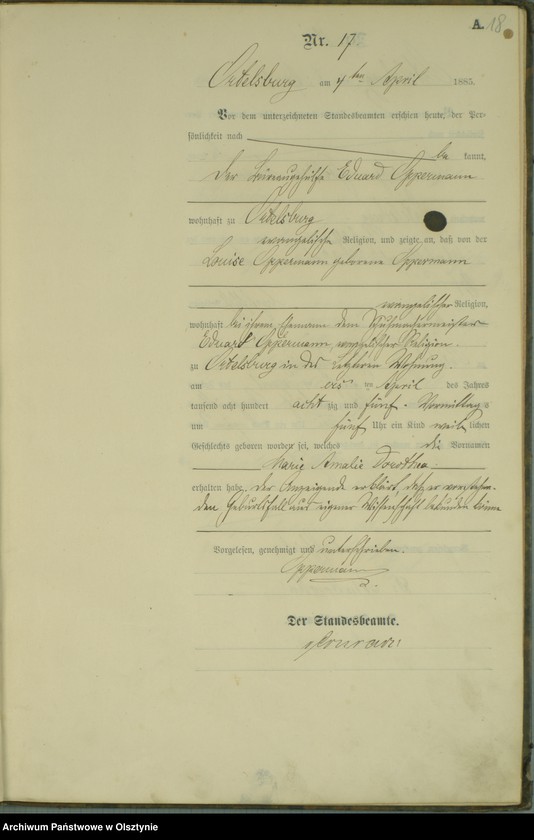 A. 18
Nr. 17
Ortelsburg am 7ten April 1885.
Vor dem unterzeichneten Standesbeamten erschien heute, der Per-
sönlichkeit nach
be kannt,
der Büreaugehülfe Eduard Oppermann
wohnhaft zu Ortelsburg
evangelischer Religion, und zeigte an, daß von der
Louise Oppermann geborene Oppermann
evangelischer Religion,
wohnhaft bei ihrem Ehemann dem Schuhmachermeister
Eduard Oppermann, evangelischer Religion.
zu Ortelsburg in des Letzteren Wohnung.
am April des Jahres
tausend acht hundert acht zig und fünf. Vormittags
um fünf Uhr ein Kind weib lichen
Geschlechts geboren worden sei, welches die Vornamen
Marie Amalie Dorothea
erhalten habe. Der Anzeigende erklärt, daß er vorstehen-
den Geburtsfall aus eigener Wissenschaft bekunden könne
Vorgelesen, genehmigt und unterschrieben.
Oppermann
Der Standesbeamte.
Archiwum Państwowe w Olsztynie